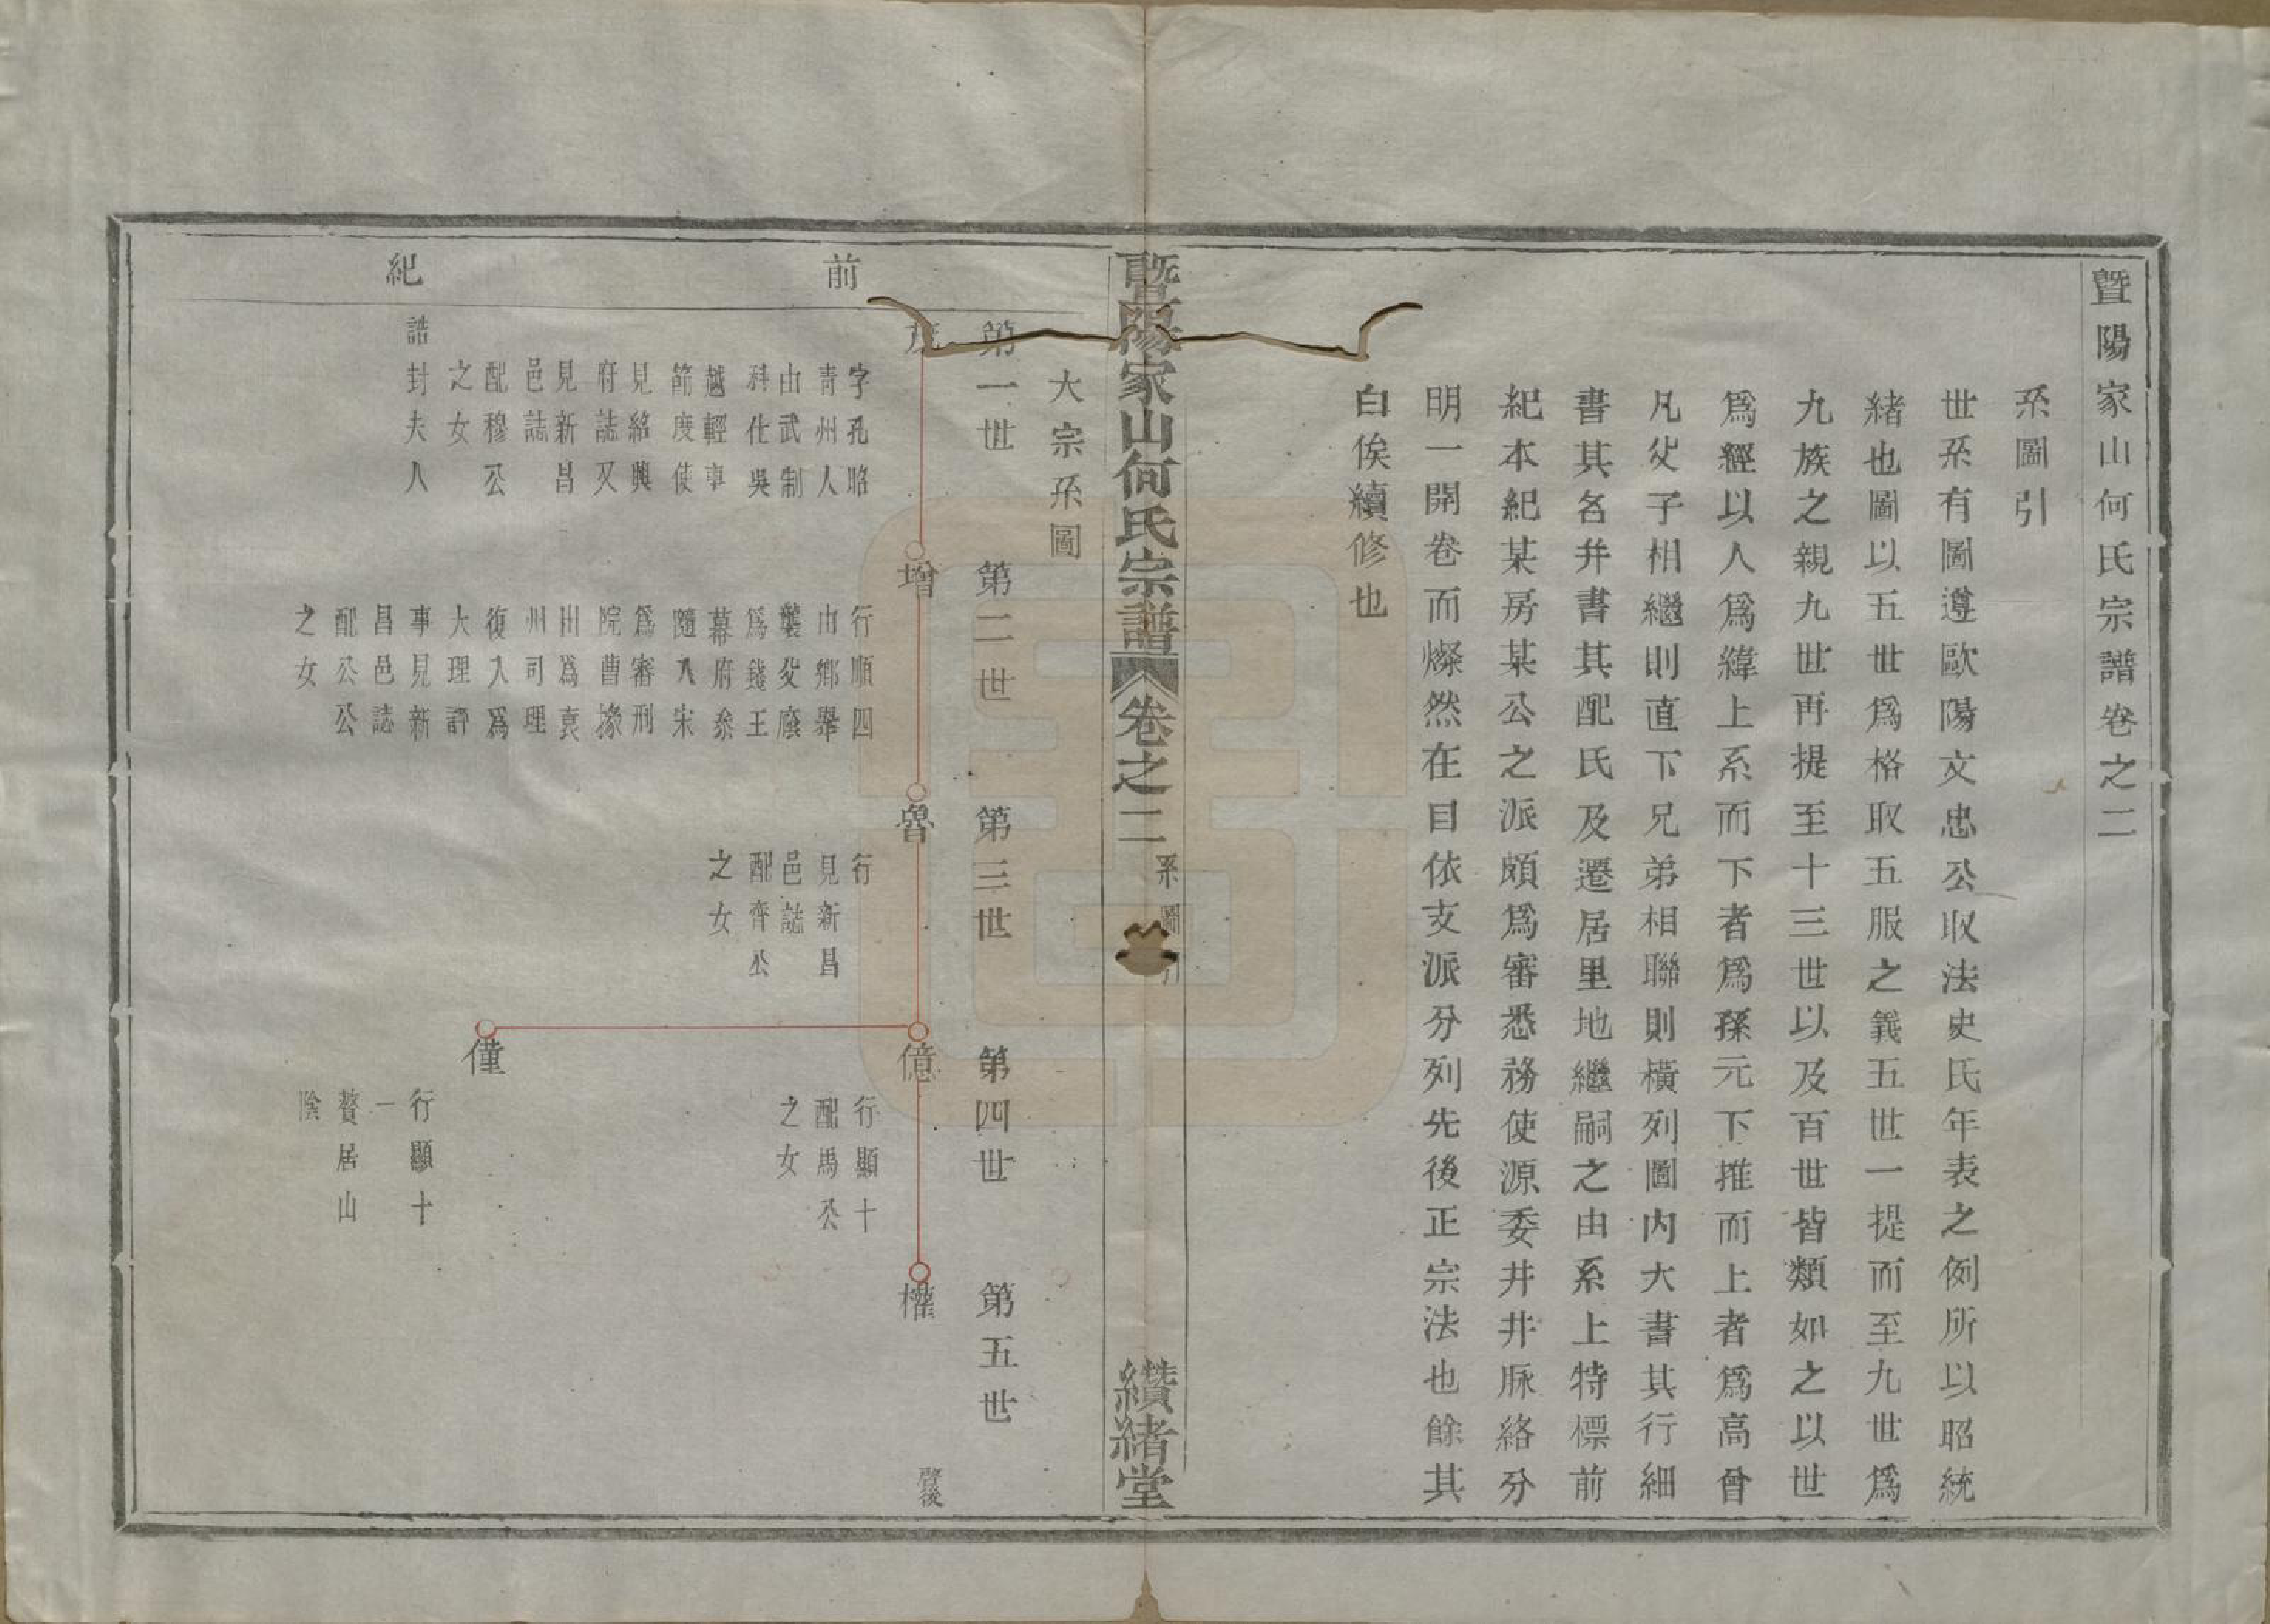 暨陽家山何氏宗譜卷之二
系圖引
世系有圖遵歐陽文忠公取法史氏年表之例所以昭統
緒也圖以五世爲格取五服之義五世一提而至九世爲
九族之親九世再提至十三世以及百世皆類如之以世
爲經以人爲緯上系而下者爲孫元下推而上者爲高曾
凡父子相繼則直下兄弟相聯則橫列圖內大書其行細
書其名并書其配氏及遷居里地繼嗣之由系上特標前
紀本紀某房某公之派頗爲審悉務使源委井井脈絡分
明一開卷而燦然在目依支派分列先後正宗法也餘其
白俟續修也
暨陽家山何氏宗譜
卷之二
系圖引
纘緒堂
大宗系圖
第一世
第二世
第三世
第四世
第五世
前
紀
茂
字孔昭
青州人
由武制
科仕吳
越輕車
節度使
見紹興
府誌又
見新昌
邑誌
配穆公
之女
誥封夫人
增
行順四
由鄉舉
襲父廕
爲錢王
幕府參
隨入宋
爲審刑
院曹掾
出爲袁
州司理
復入爲
大理評
事見新
昌邑誌
配公公
之女
魯
行
見新昌
邑誌
配齊公
之女
億
行顯十
配馬公
之女
僅
行顯十
一
贅居山
陰
權